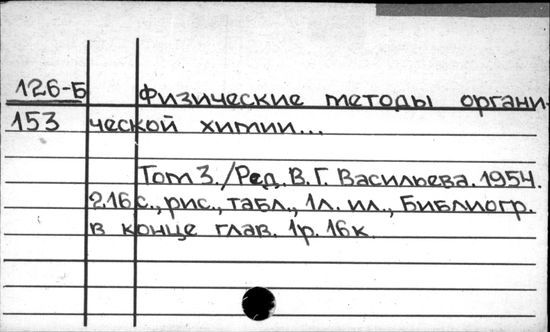 126-Б Физические методы органи-
153 ческой химии...
Том 3./Ред. В.Г. Васильева. 1954.
216 с., рис., табл., 1 л. ил., Библиогр.
в конце глав. 1р. 16к.